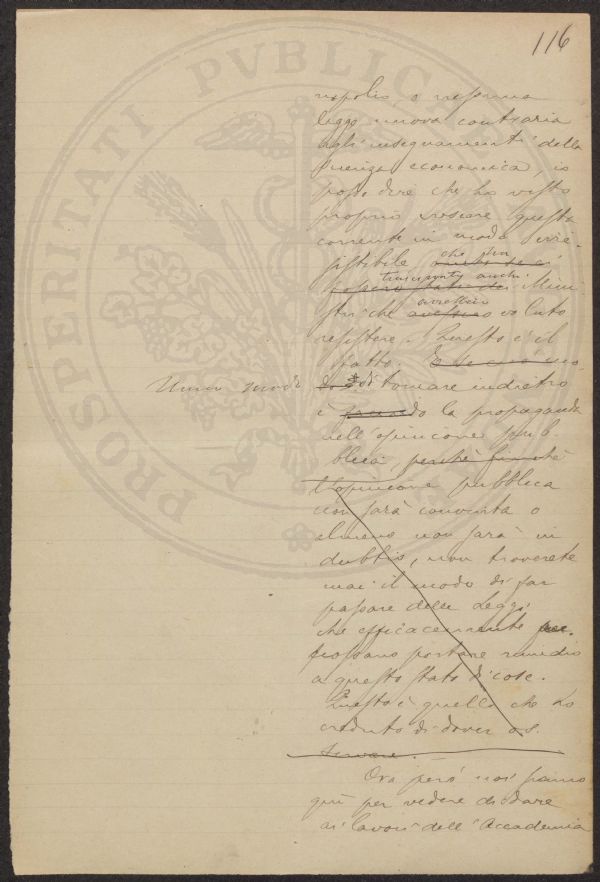 116
PROSPERITATI PVBLICAE
nopolio, o nessuna
legge nuova contraria
agli insegnamenti della
scienza economica, io
posso dire che ho visto
proprio crescere questa
corrente in modo irre-
sistibile che ha
trascinato anche
Mini
stri che avessero voluto
resistere. Questo è il
fatto. E se ciò
Unico modo di tornare indietro
è la propaganda
nell'opinione pub-
blica perchè finchè
l'opinione pubblica
non sarà convinta o
almeno non sarà in
dubbio, non troverete
mai il modo di far
passare delle Leggi
che efficacemente
possano portare rimedio
a questo stato di cose.
Questo è quello che ho
creduto di dover os-
servare.
Ora però noi siamo
qui per vedere di dare
ai lavori dell'Accademia